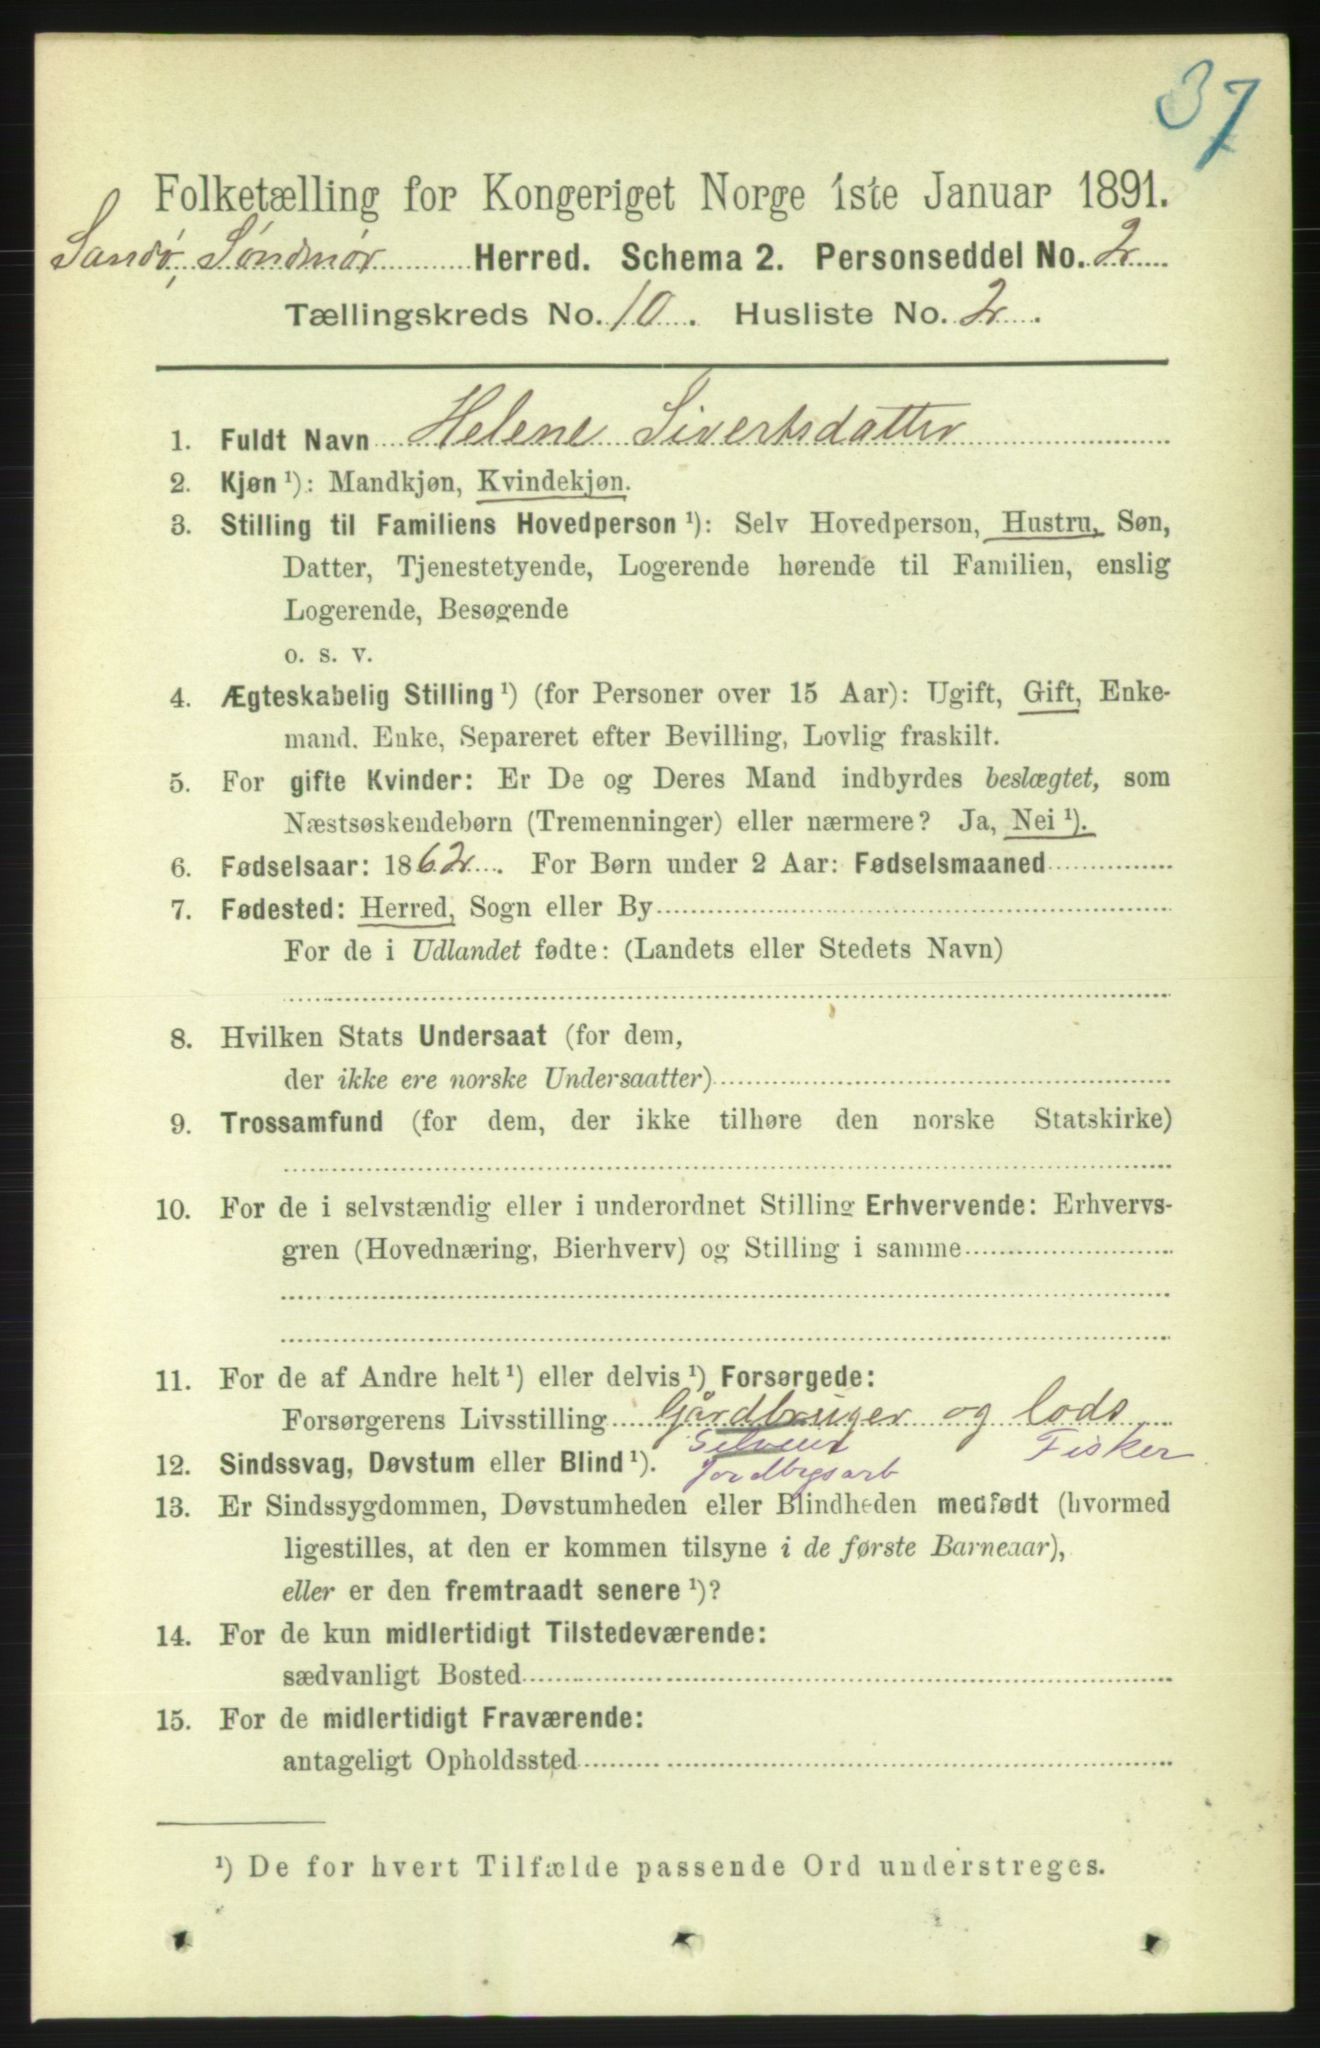 37
Folketælling for Kongeriget Norge 1ste Januar 1891.
Sandø, Søndmør Herred. Schema 2. Personseddel No. 2
Tællingskreds No. 10. Husliste No. 2.
1. Fuldt Navn Helene Sivertsdatter
2. Kjøn ¹): Mandkjøn, Kvindekjøn.
3. Stilling til Familiens Hovedperson ¹): Selv Hovedperson, Hustru, Søn,
Datter, Tjenestetyende, Logerende hørende til Familien, enslig
Logerende, Besøgende
o. s. v.
4. Ægteskabelig Stilling ¹) (for Personer over 15 Aar): Ugift, Gift, Enke-
mand. Enke, Separeret efter Bevilling, Lovlig fraskilt.
5. For gifte Kvinder: Er De og Deres Mand indbyrdes beslægtet, som
Næstsøskendebørn (Tremenninger) eller nærmere? Ja, Nei ¹).
6. Fødselsaar: 1862. For Børn under 2 Aar: Fødselsmaaned
7. Fødested: Herred, Sogn eller By
For de i Udlandet fødte: (Landets eller Stedets Navn)
8. Hvilken Stats Undersaat (for dem,
der ikke ere norske Undersaatter)
9. Trossamfund (for dem, der ikke tilhøre den norske Statskirke)
10. For de i selvstændig eller i underordnet Stilling Erhvervende: Erhvervs-
gren (Hovednæring, Bierhverv) og Stilling i samme
11. For de af Andre helt ¹) eller delvis ¹) Forsørgede:
Forsørgerens Livsstilling Gårdbruger og lods
Selveier Fisker
12. Sindssvag, Døvstum eller Blind ¹). Jordbrgsarb
13. Er Sindssygdommen, Døvstumheden eller Blindheden medfødt (hvormed
ligestilles, at den er kommen tilsyne i de første Barneaar),
eller er den fremtraadt senere ¹)?
14. For de kun midlertidigt Tilstedeværende:
sædvanligt Bosted
15. For de midlertidigt Fraværende:
antageligt Opholdssted
¹) De for hvert Tilfælde passende Ord understreges.